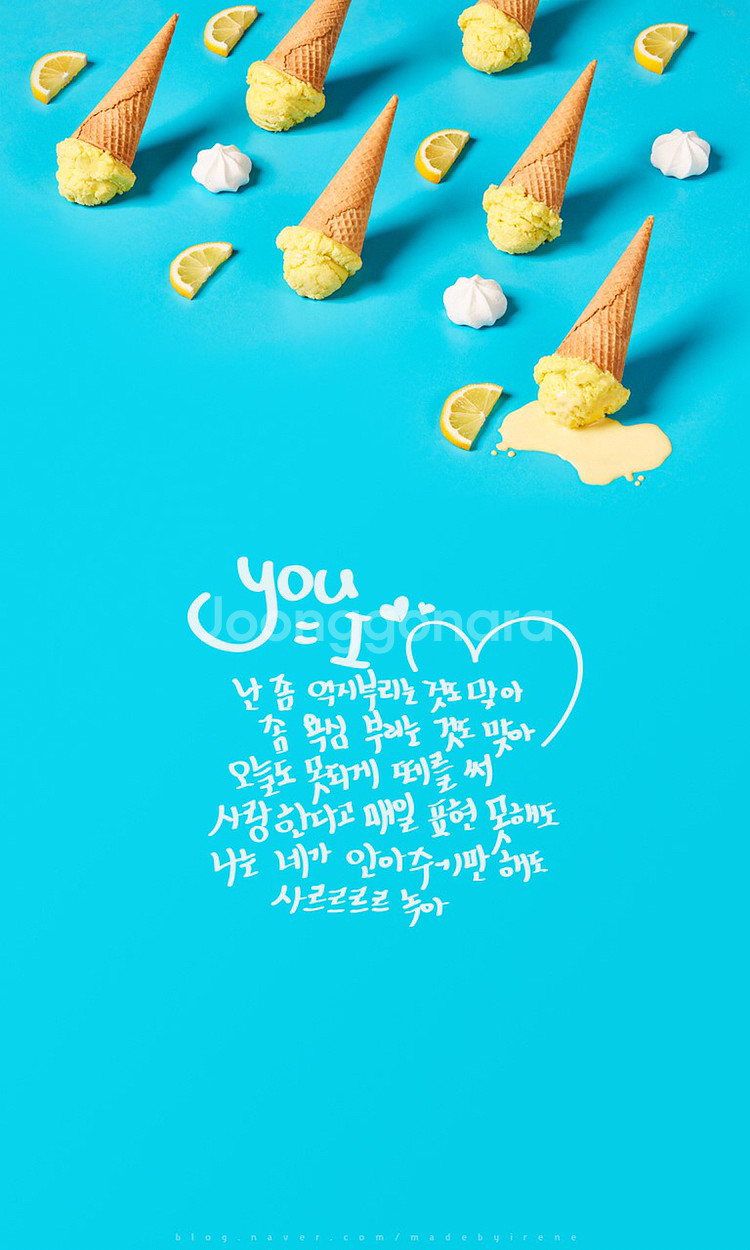 you
= I
Joonggonara
난 좀 억지부리는 것도 맞아
좀 욕심 부리는 것도 맞아
오늘도 못되게 떼를 써
사랑한다고 매일 표현 못해도
나는 네가 안아주기만 해도
사르르르르 녹아
blog.naver.com/madebyirene